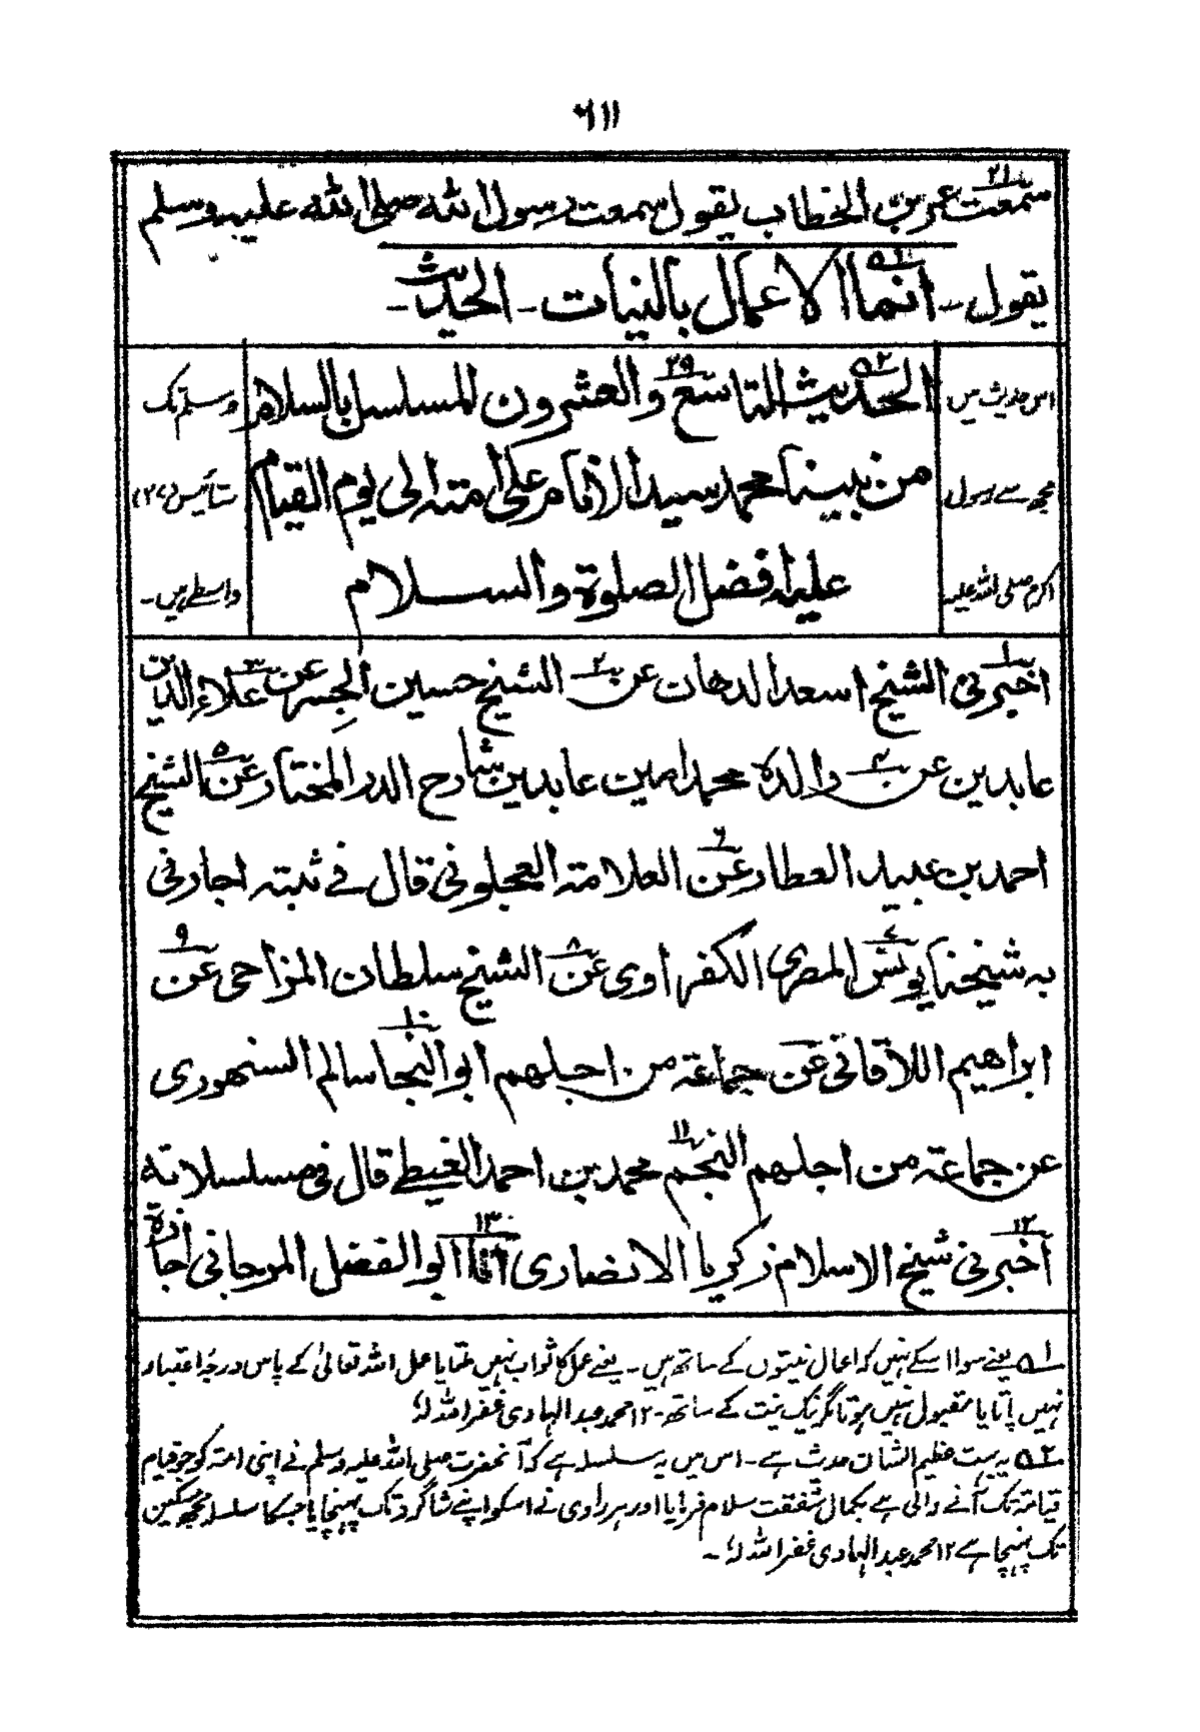 ۱۱۶
سمعت عمر بن الخطاب يقول سمعت رسول الله صلى الله عليه وسلم ۲۱
يقول ـ انما الاعمال بالنيات ـ الحديث ـ ۵۱
الحديث التاسع والعشرون المسلسل بالسلام ۵۲ ۲۹
من نبينا محمد سيد الانام على امته الى يوم القيام
عليه افضل الصلوة والسلام
اس حدیث میں
مجھ سے رسول
اکرم صلی اللہ علیہ
وسلم تک
ستائیس (۲۷)
واسطے ہیں ۔
اخبرني الشيخ اسعد الدهان عن الشيخ حسين الجسر عن علاء الدين ۱ ۲ ۳
عابدين عن والده محمد امين عابدين شارح الدر المختار عن الشيخ ۴ ۵
احمد بن عبيد العطار عن العلامة العجلوني قال في ثبته اجازني ۶
به شيخنا يونس المصري الكفراوي عن الشيخ سلطان المزاحي عن ۷ ۸ ۹
ابراهيم اللاقاني عن جماعة من اجلهم ابو النجا سالم السنهوري ۱۰
عن جماعة من اجلهم النجم محمد بن احمد الغيطي قال في مسلسلاته ۱۱
اخبرني شيخ الاسلام زكريا الانصاري انا ابو الفضل المرجاني اجازة ۱۲ ۱۳
۵۱ یعنے سوا اسکے نہیں کہ اعمال نیتوں کے ساتھ ہیں ۔ یعنے عمل کا ثواب نہیں ملتا یا عمل اللہ تعالیٰ کے پاس درجۂ اعتبار
نہیں پاتا یا مقبول نہیں ہوتا مگر نیک نیت کے ساتھ ۔ ۱۲ محمد عبد الہادی غفر اللہ لہٗ
۵۲ یہ بہت عظیم الشان حدیث ہے ۔ اس میں یہ سلسلہ ہے کہ آنحضرت صلی اللہ علیہ وسلم نے اپنی امت کو جو قیام
قیامت تک آنے والی ہے بکمال شفقت سلام فرمایا اور ہر راوی نے اسکو اپنے شاگرد تک پہنچایا جسکا سلسلہ مجھ مسکین
تک پہنچا ہے ۱۲ محمد عبد الہادی غفر اللہ لہٗ ۔